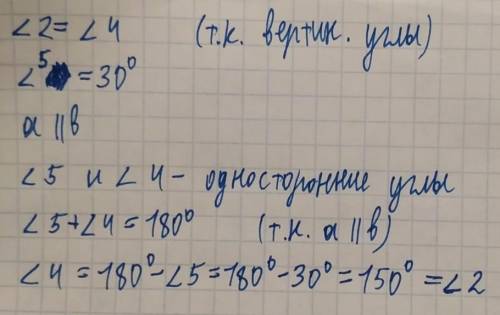 ∠2 = ∠4 (т.к. вертик. углы)
∠5 = 30°
a || b
∠5 и ∠4 - односторонние углы
∠5 + ∠4 = 180° (т.к. a || b)
∠4 = 180° - ∠5 = 180° - 30° = 150° = ∠2